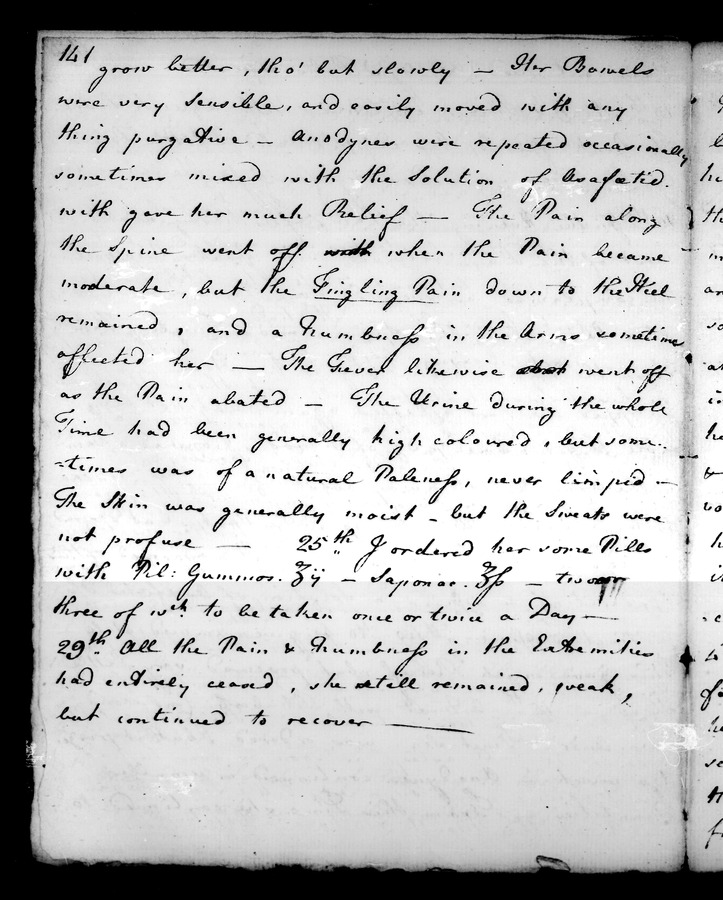 141
grow better, tho' but slowly — Her Bowels
were very sensible, and easily moved with any
thing purgative — Anodynes were repeated occasionally
sometimes mixed with the Solution of Asafœtid.
with gave her much Relief — The Pain along
the Spine went off with when the Pain became
moderate, but the Tingling Pain down to the Heel
remained, and a Numbness in the Arms sometime
affected her — The Fever likewise went off
as the Pain abated — The Urine during the whole
Time had been generally high coloured, but some-
=times was of a natural Paleness, never limpid —
The Skin was generally moist — but the Sweats were
not profuse — 25th I ordered her some Pills
with Pil: Gummos. ʒij — Saponac. ʒſs — two or
three of wch to be taken once or twice a Day —
29th All the Pain & Numbness in the Extremities
had entirely ceased, she still remained, weak,
but continued to recover —